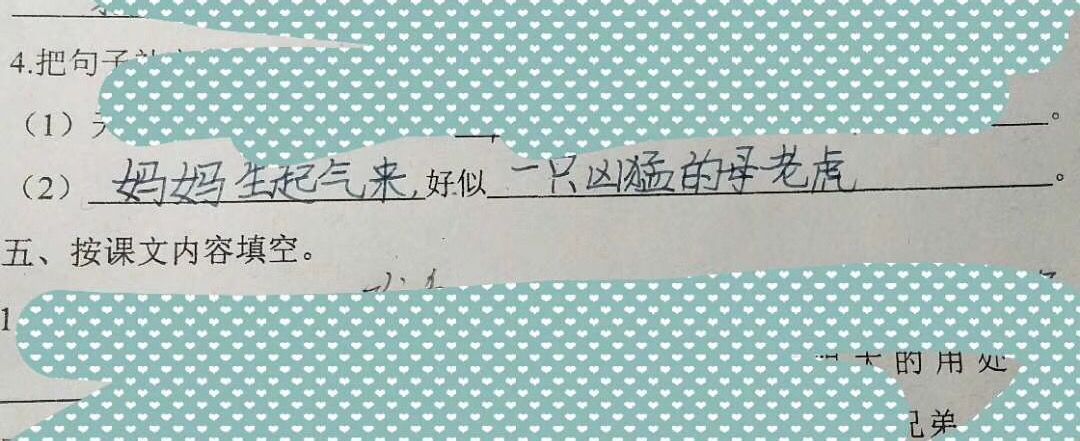 4.把句子
（1）
。
（2）妈妈生起气来,好似一只凶猛的母老虎。
五、按课文内容填空。
1
的用处
弟